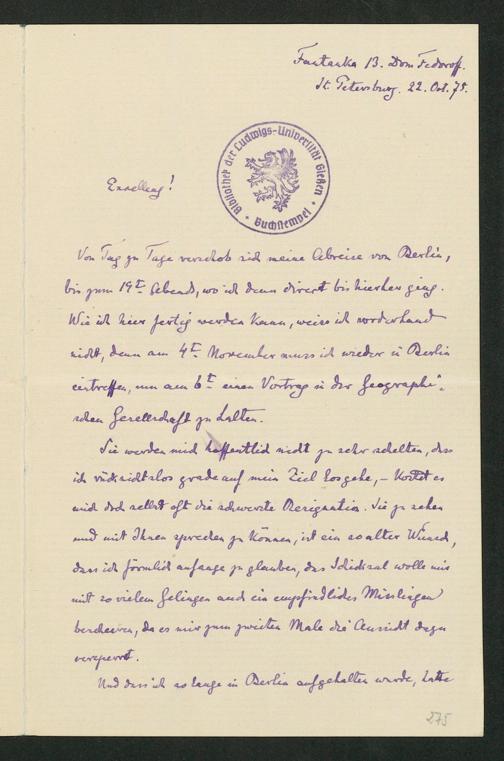 Fontanka 13. Dom Fedoroff.
St. Petersburg. 22. Oct. 75.
Bibliothek der Ludwigs-Universität Gießen
Buchstempel
Excellenz!
Von Tag zu Tage verschob sich meine Abreise von Berlin,
bis zum 19t. Abends, wo ich dann direct bis hierher ging.
Wie ich hier fertig werden kann, weiss ich vorderhand
nicht, denn am 4t. November muss ich wieder in Berlin
eintreffen, um am 6t. einen Vortrag in der Geographi-
schen Gesellschaft zu halten.
Sie werden mich hoffentlich nicht zu sehr schelten, dass
ich rücksichtslos grade auf mein Ziel losgehe, – kostet es
mich doch selbst oft die schwerste Resignation. Sie zu sehen
und mit Ihnen sprechen zu können, ist ein so alter Wunsch,
dass ich förmlich anfange zu glauben, das Schicksal wolle mir
mit so vielem Gelingen auch ein empfindliches Misslingen
bescheeren, da es mir zum zweiten Male die Aussicht dazu
versperrt.
Und dass ich so lange in Berlin aufgehalten wurde, hatte
275